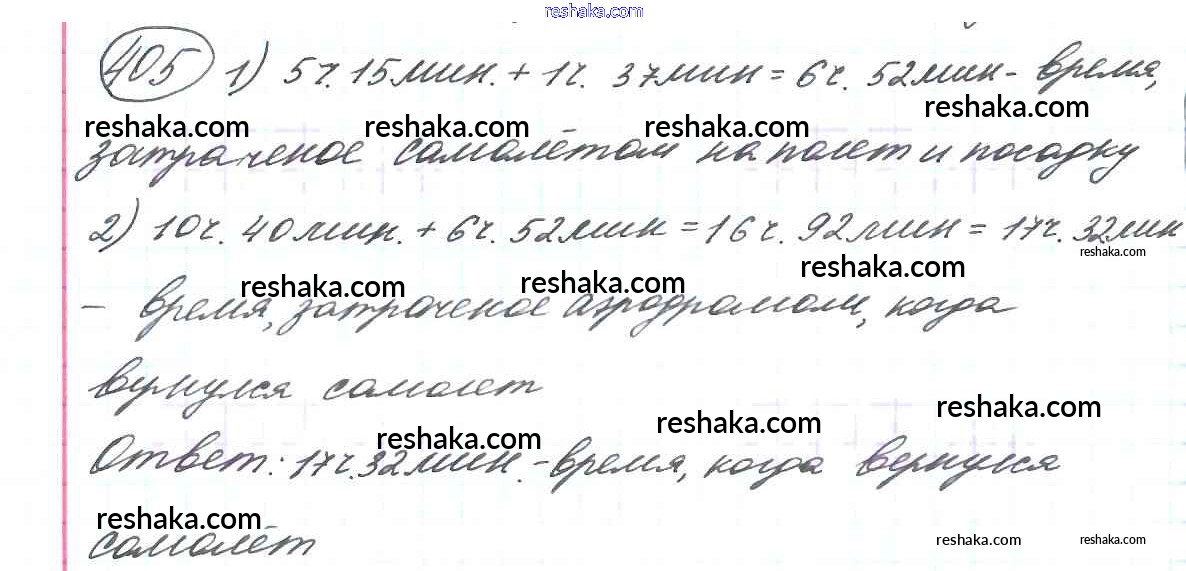 reshaka.com
405 1) 5ч. 15мин. + 1ч. 37мин = 6ч. 52мин - время,
reshaka.com
reshaka.com reshaka.com reshaka.com
затраченое самолётом на полет и посадку
2) 10ч. 40мин. + 6ч. 52мин = 16ч. 92мин = 17ч. 32мин
reshaka.com
reshaka.com reshaka.com reshaka.com
- время, затраченое аэродромом, когда
вернулся самолет
reshaka.com reshaka.com reshaka.com
Ответ: 17ч. 32мин. - время, когда вернулся
reshaka.com
самолёт
reshaka.com reshaka.com